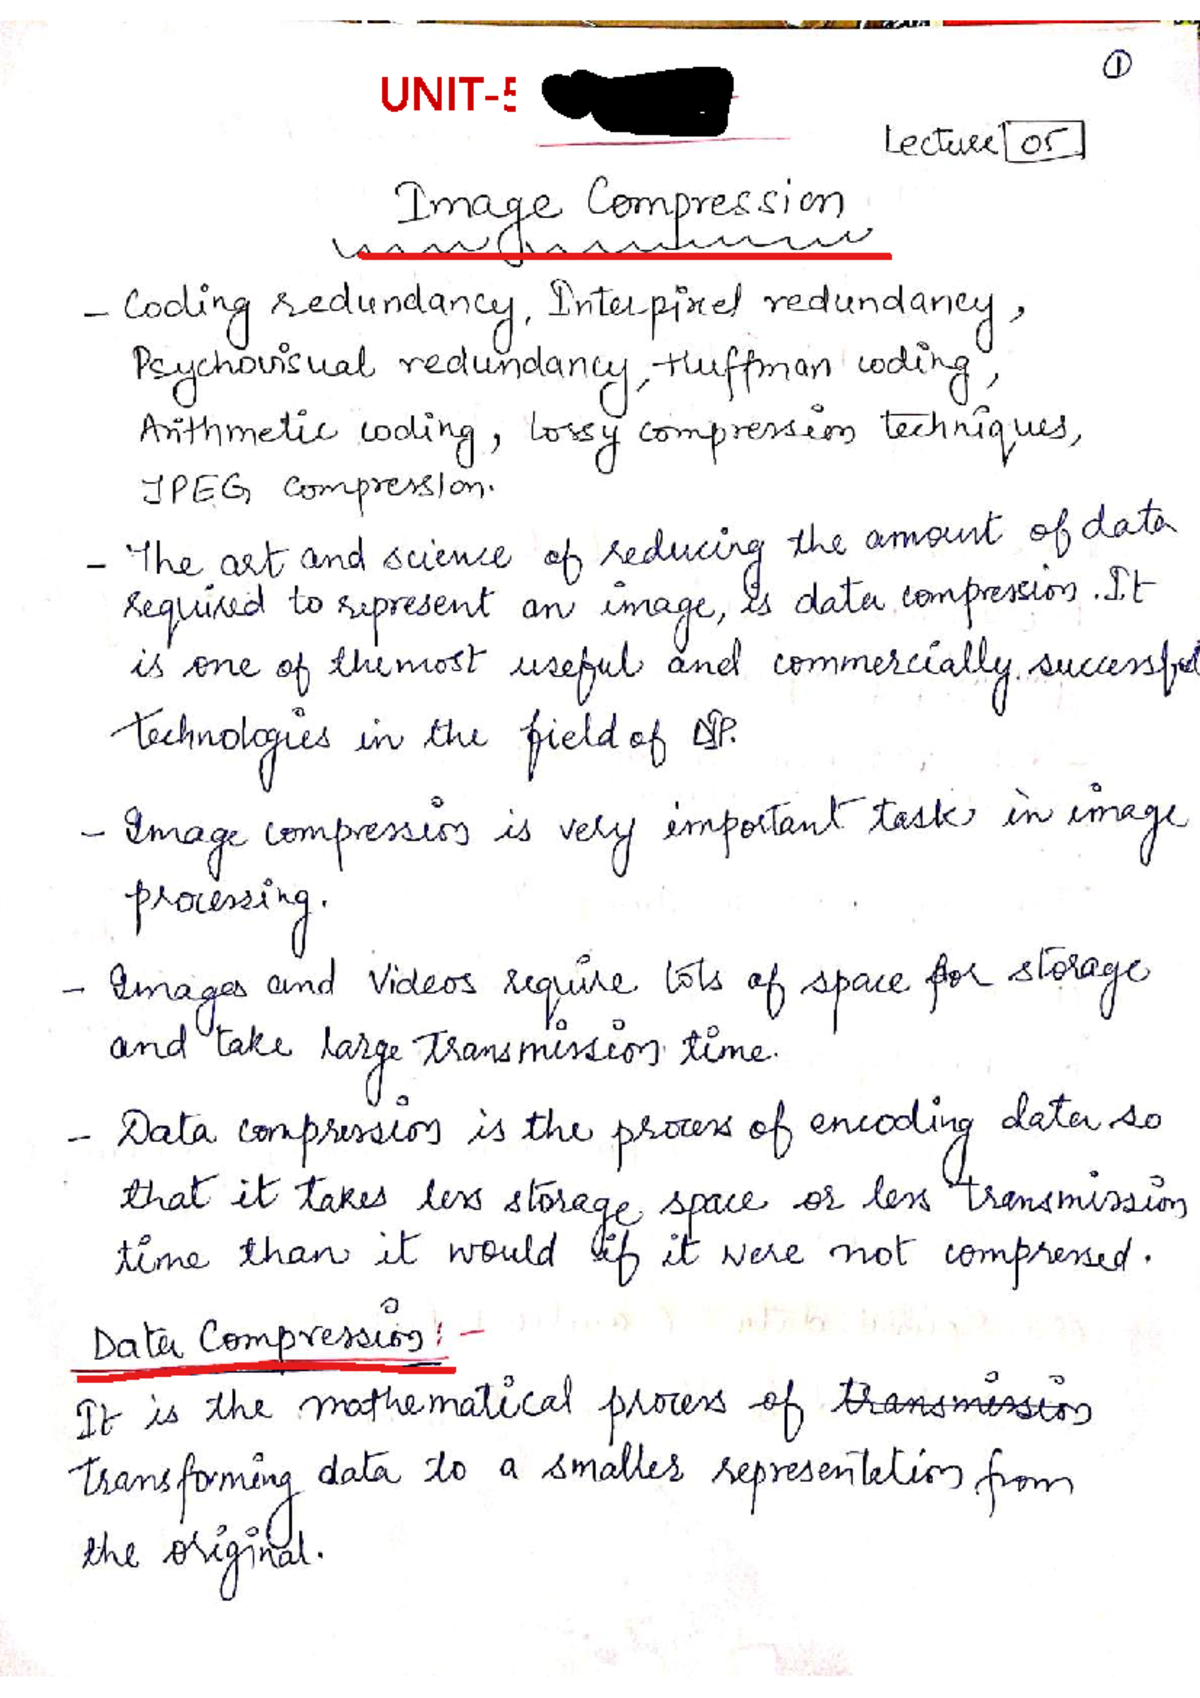 ①
UNIT-5
Lecture 05
Image Compression
- Coding redundancy, Interpixel redundancy,
Psychovisual redundancy, Huffman coding,
Arithmetic coding, Lossy compression techniques,
JPEG Compression.
- The art and science of reducing the amount of data
required to represent an image, is data compression. It
is one of the most useful and commercially successful
technologies in the field of DIP.
- Image compression is very important task in image
processing.
- Images and Videos require lots of space for storage
and take large transmission time.
- Data compression is the process of encoding data so
that it takes less storage space or less transmission
time than it would if it were not compressed.
Data Compression:-
It is the mathematical process of transmission
transforming data to a smaller representation from
the original.